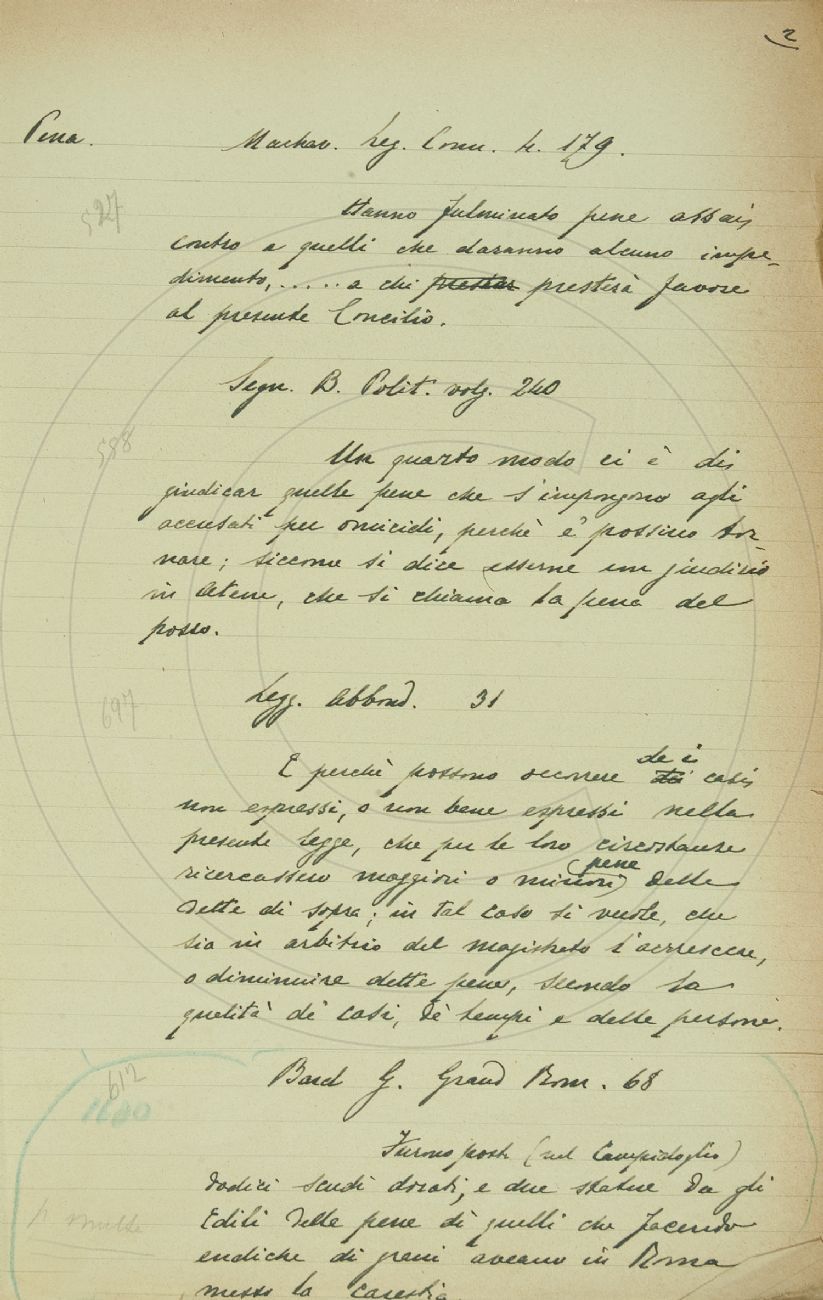 2
Pena.
Machav. Leg. Comm. 4. 179.
527
Hanno fulminato pene assai
contro a quelli che daranno alcuno impe-
dimento,..... a chi prestar prestirà favore
al presente Concilio.
Segn. B. Polit. volg. 240
588
Un quarto modo ci è di
giudicar quelle pene che s'impongono agli
accusati per omicidi, perchè e' possino tor-
nare; siccome si dice esserne un judizio
in Atene, che si chiama la pena del
pozzo.
Legg. Abbond. 31
697
E perchè possono occorrere dei casi
non espressi, o non bene espressi nella
presente legge, che per le loro circostanze
ricercassero maggiori o minori (pene) delle
dette di sopra; in tal caso si vuole, che
sia in arbitrio del magistrato l'accrescere,
o diminuire dette pene, secondo la
qualità de' casi, de' tempi e delle persone.
Bard G. Grand Rom. 68
612
1600
Furono posti (nel Campidoglio)
dodici scudi dorati, e due statue da gli
Edili delle pene di quelli che facendo
endiche di grani aveano in Roma
p multe
messo la carestia